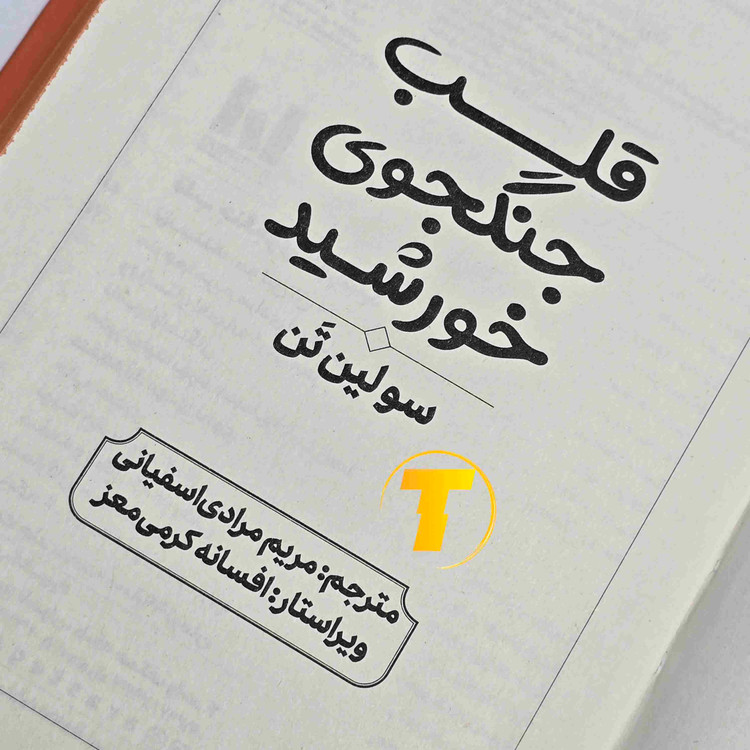 قلب
جنگجوی
خورشید
سولین تَن
T
مترجم: مریم مرادی اسفیانی
ویراستار: افسانه کرمی معز